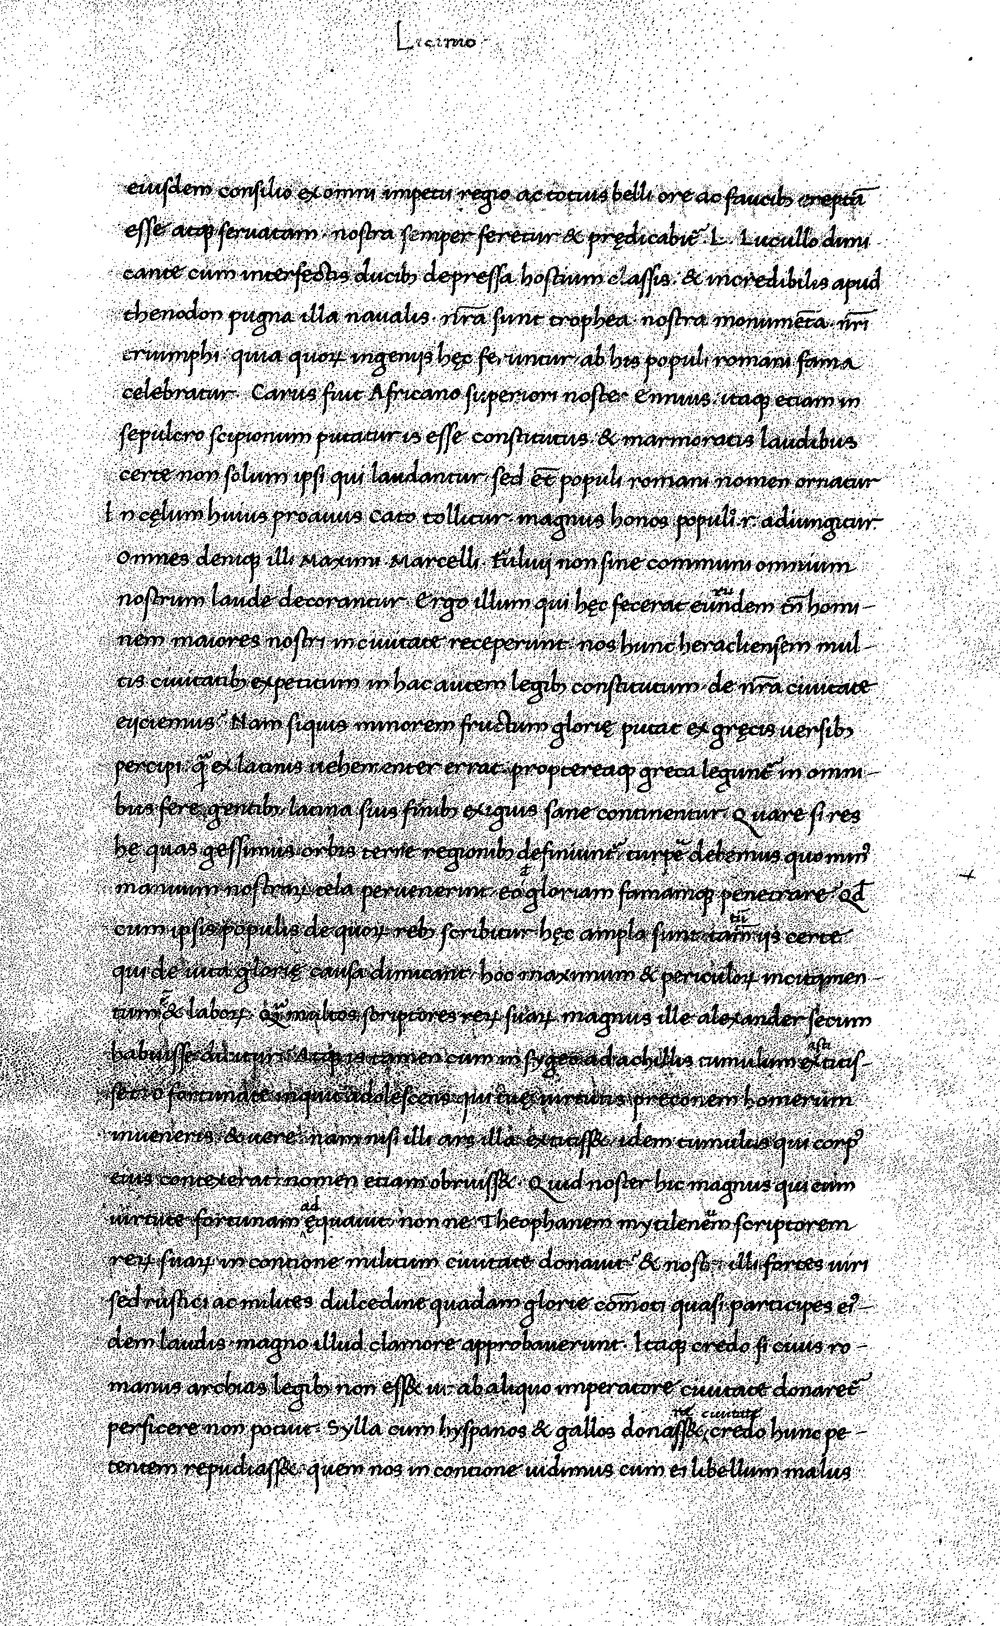 Licinio
eiusdem consilio ex omni impetu regio ac totius belli ore ac faucib; ereptā
esse atq; seruatam. nostra semper feretur & prędicabit̄ L. Lucullo dimi
cante cum interfectis ducib; depressa hostium classis. & incredibilis apud
thenodon pugna illa naualis. nr̄a sunt trophea. nostra monumēta. nr̄i
triumphi. quia quoꝝ ingenijs hęc feruntur. ab his populi romani fama
celebratur. Carus fuit Africano superiori noster Ennius. itaq; etiam in
sepulcro scipionum putatur is esse constitutus. & marmoratis laudibus
certe non solum ipsi qui laudantur. sed et̄ populi romani nomen ornatur
In cęlum huius proauus Cato tollitur. magnus honos populi. r. adiungitur.
Omnes deniq; illi Maximi. Marcelli. Fuluij non sine communi omnium
nostrum laude decorantur. Ergo illum qui hęc fecerat eundem tn̄ homi-
nem maiores nostri in ciuitate receperunt. nos hunc heracliensem mul-
tis ciuitatib; expetitum in hac autem legib; constitutum. de nr̄a ciuitate
eijciemus? Nam siquis minorem fructum glorię putat ex gręcis uersib;
percipi. q̄ ex latinis uehementer errat. proptereaq; greca legunt̄ in omni-
bus fere gentib; latina suis finib; exiguis sane continentur. Quare si res
hę quas gessimus orbis terrę regionib; definiunt̄. turpe debemus quo minꝰ
manuum nostraꝝ tela peruenerint. eodē gloriam famamq; penetrare. Qd̄
cum ipsis populis de quoꝝ reb; scribitur hęc ampla sunt. tam ijs certe
qui de uita glorię causa dimicant. hoc maximum & periculoꝝ incitamen-
tum ē & laboꝝ. Qm̄ multos scriptores reꝝ suaꝝ magnus ille alexander secum
habuisse dicitur. Atq; is tamen cum in sygeo ad achillis tumulum extitis-
set. o fortunate inquit adolescens qui tuę uirtutis preconem homerum
inueneris. & uere. nam nisi illi ars illa extitiss&. idem tumulus qui corpꝰ
eius contexerat. nomen etiam obruiss&. Quid noster hic magnus qui cum
uirtute fortunam adęquauit. non ne Theophanem mytilenēm scriptorem
reꝝ suaꝝ in contione militum ciuitate donauit? & nostri illi fortes uiri
sed rustici ac milites dulcedine quadam glorie com̄oti quasi participes eiꝰ-
dem laudis. magno illud clamore approbauerunt. Itaq; credo si ciuis ro-
manus archias legib; non ess& ut ab aliquo imperatore ciuitate donaret̄
perficere non potuit. Sylla cum hyspanos & gallos donass& ciuitate credo hunc pe-
tentem repudiass&. quem nos in contione uidimus cum ei libellum malus